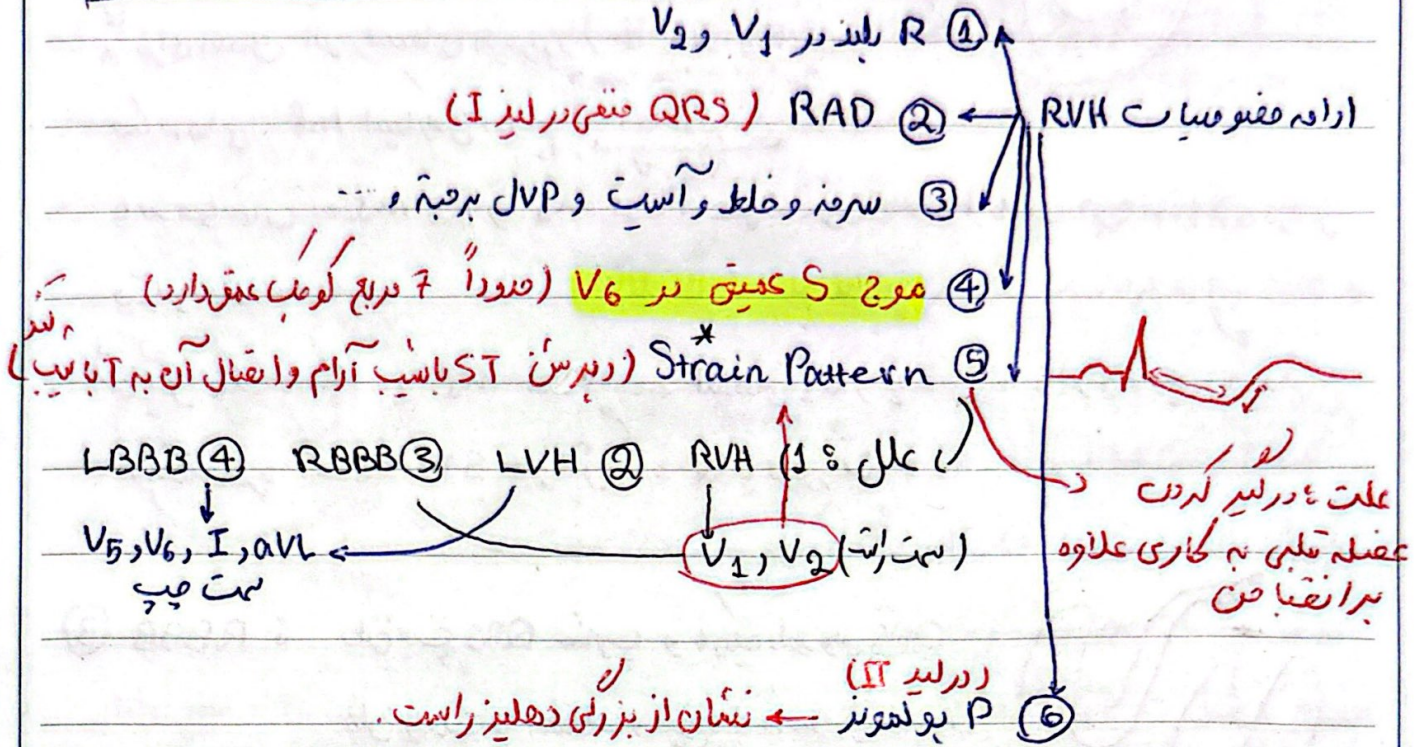 ① R بلند در V1 و V2
ادامه خصوصیات RVH ← ② RAD (QRS منفی در لید I)
③ سرفه و خلط و آسیت و JVP برجسته و ...
④ موج S عمیق در V6 (حدوداً 7 مربع کوچک عمق دارد)
⑤ Strain Pattern* (دپرشن ST با شیب آرام و اتصال آن به T با شیب تند)
علل: 1) RVH ② LVH ③ RBBB ④ LBBB
V1, V2 (سمت راست)
V5, V6, I, aVL
سمت چپ
علت: درگیر کردن
عضله قلبی به کاری علاوه
بر انقباض
(در لید II)
⑥ P پولموند ← نشان از بزرگی دهلیز راست.